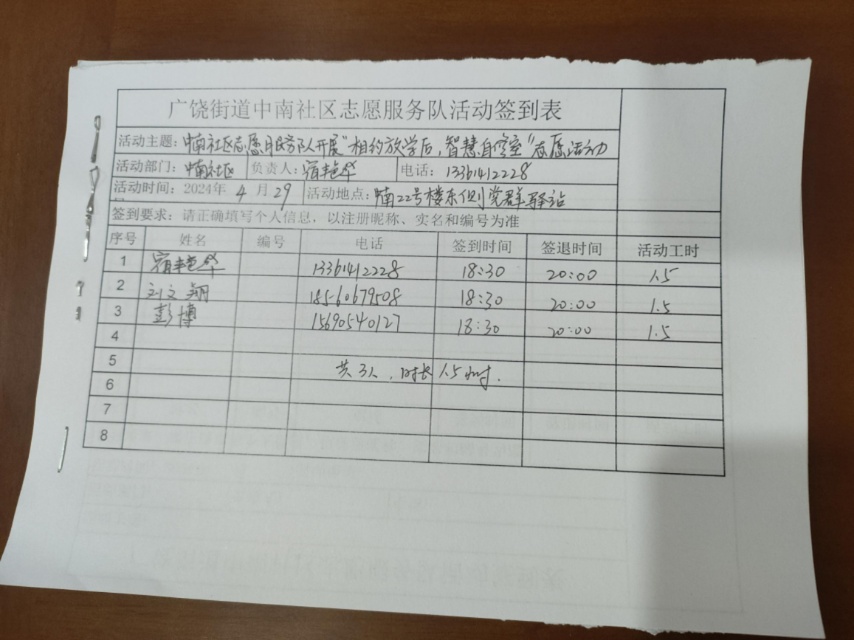 广饶街道中南社区志愿服务队活动签到表
活动主题：中南社区志愿服务队开展"相约放学后，智慧自习室"志愿活动
活动部门：中南社区 负责人：宿艳华 电话：13361412228
活动时间：2024年4月29 活动地点：中南22号楼东侧党群驿站
签到要求：请正确填写个人信息，以注册昵称、实名和编号为准
序号 姓名 编号 电话 签到时间 签退时间 活动工时
1 宿艳华 13361412228 18:30 20:00 1.5
2 刘文翔 18560679508 18:30 20:00 1.5
3 彭博 15690540127 18:30 20:00 1.5
4
5 共3人，时长1.5小时.
6
7
8